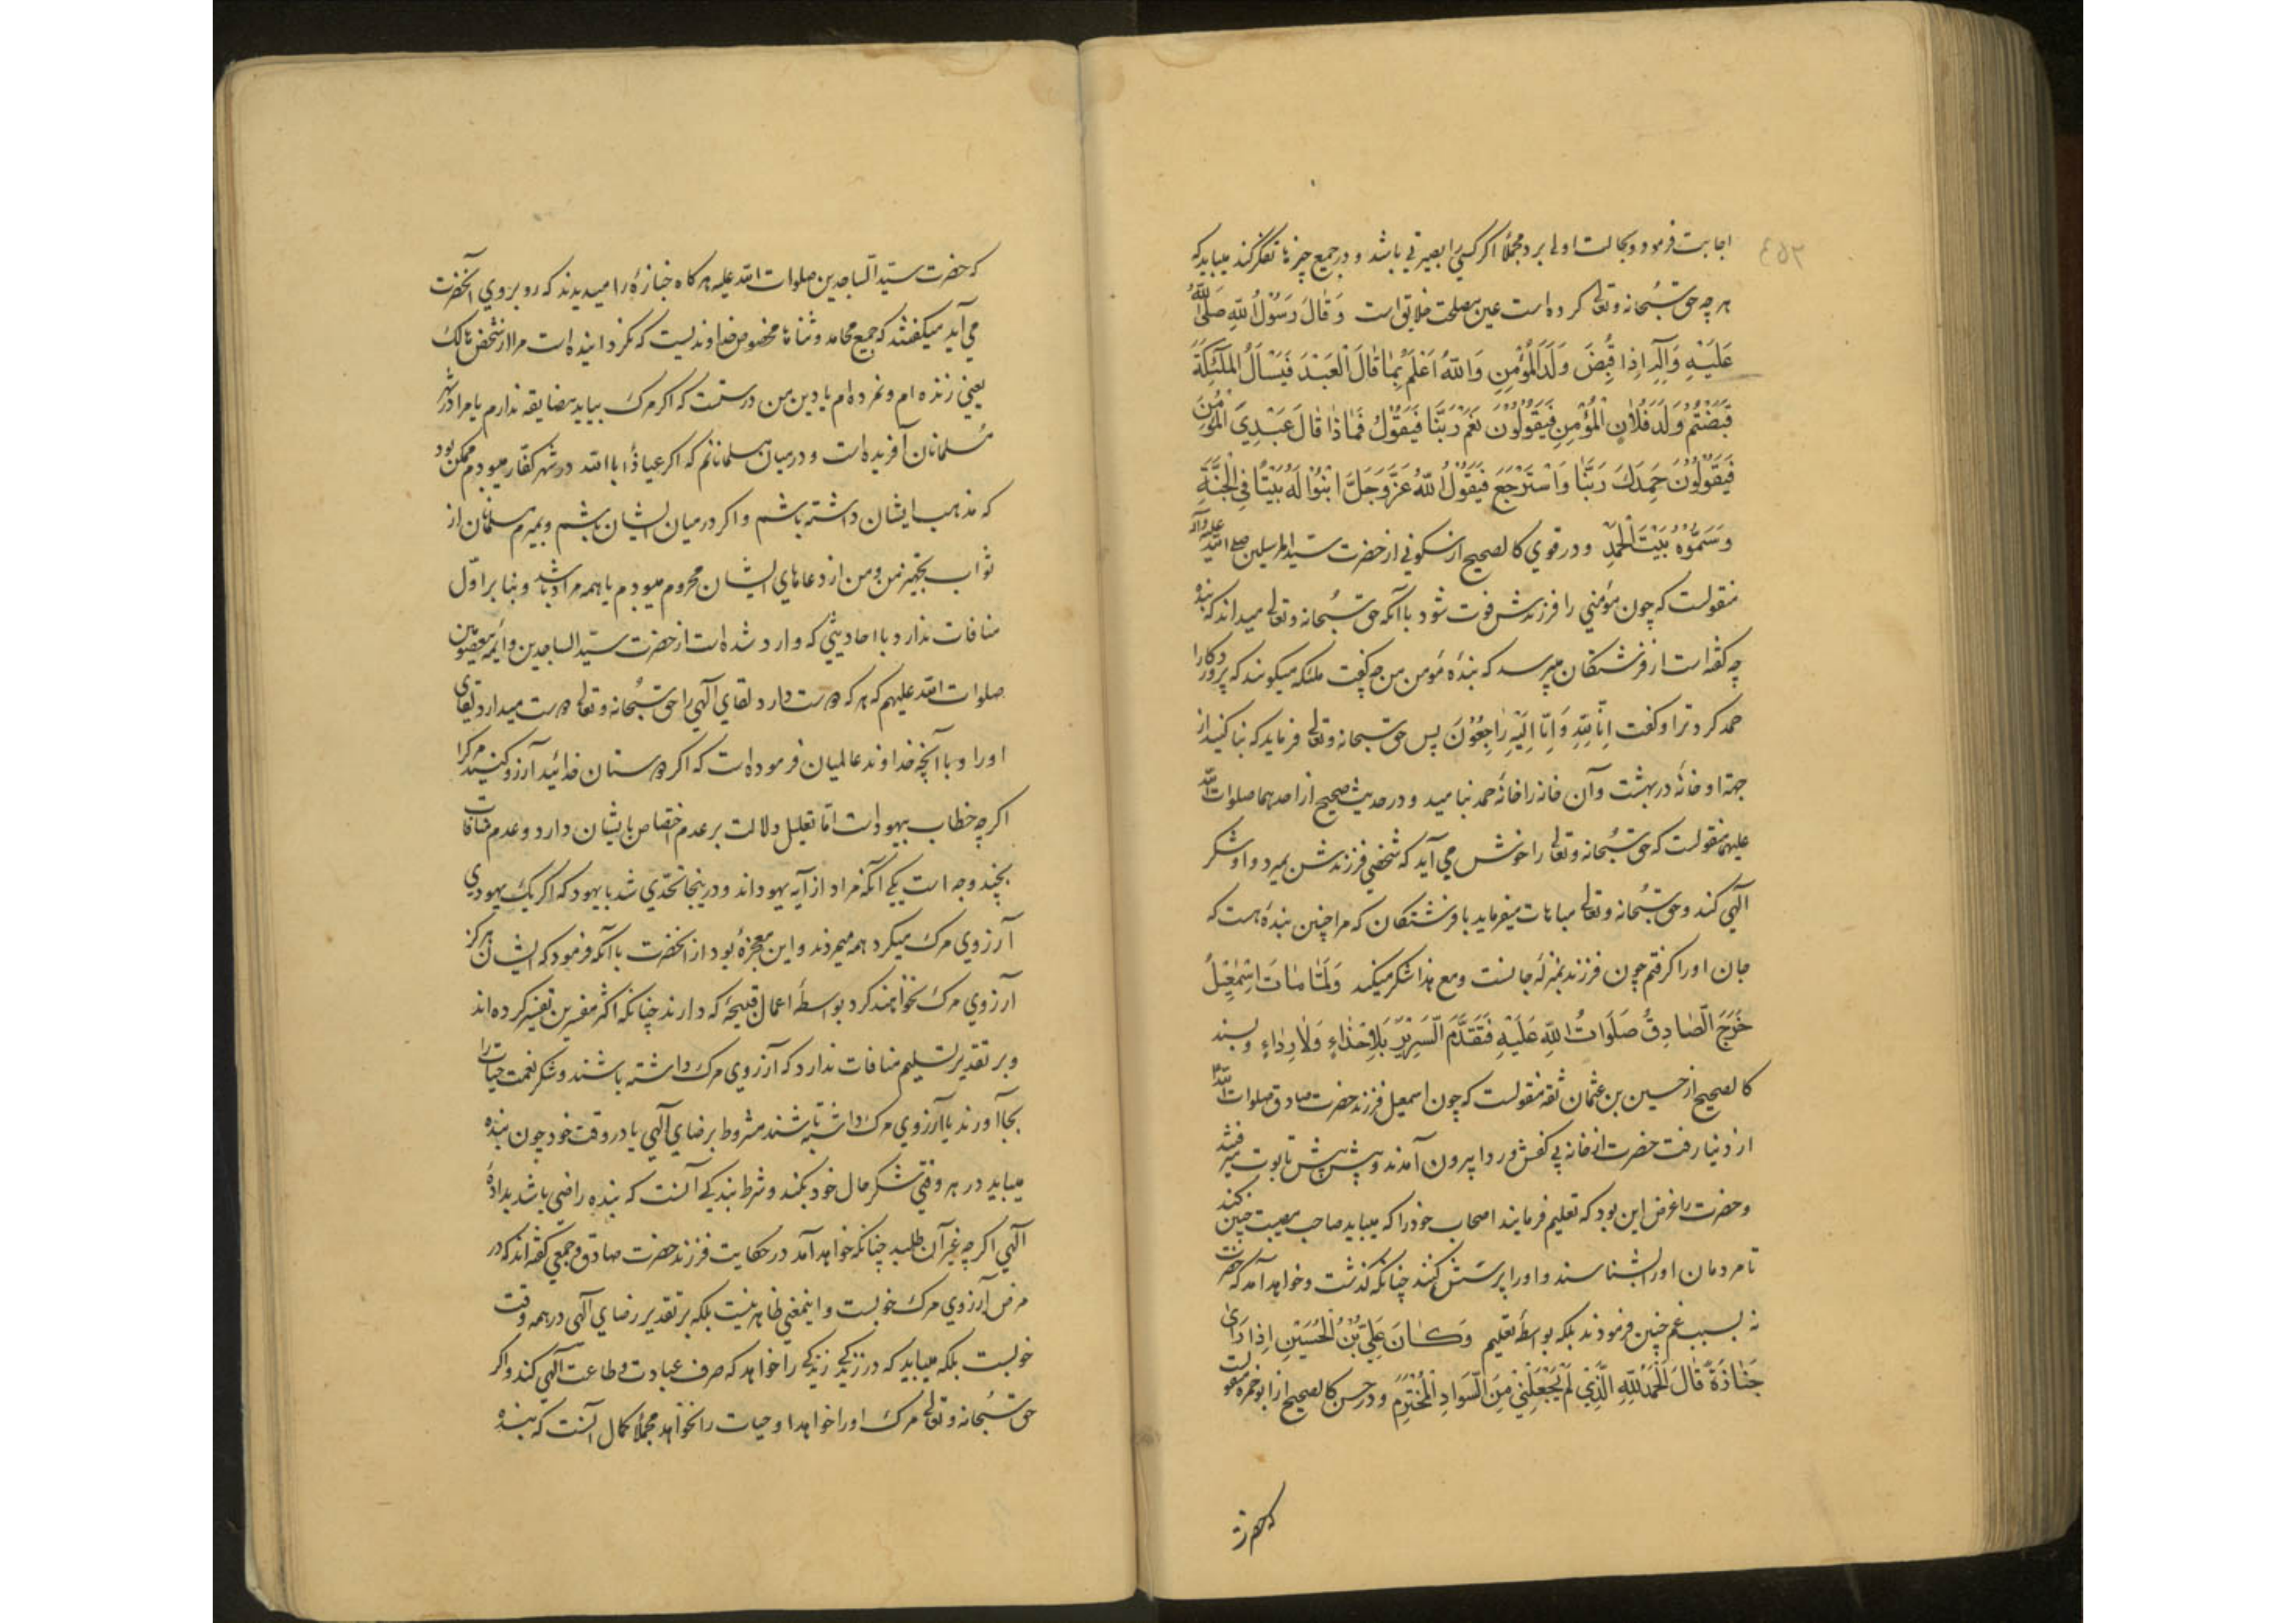 اجابت فرمود و بحالت اولی برد مجملا اگر کسی را بصیرتی باشد و در جمیع چیزها تفکر کند میباید که
هر چه حق سُبحانه و تعالی کرده است عین مصلحت خلایق است وَ قٰالَ رَسُوْلُ اللّٰهِ صَلَّی اللّٰهُ
عَلَیْهِ وَ اٰلِهٖ اِذٰا قُبِضَ وَلَدُ الْمُؤْمِنِ وَ اللّٰهُ اَعْلَمُ بِمٰا قٰالَ الْعَبْدُ فَیَسْاَلُ الْمَلٰٓئِکَةَ
قَبَضْتُمْ وَلَدَ فُلٰانٍ الْمُؤْمِنِ فَیَقُوْلُوْنَ نَعَمْ رَبَّنٰا فَیَقُوْلُ فَمٰاذٰا قٰالَ عَبْدِیَ الْمُؤْمِنُ
فَیَقُوْلُوْنَ حَمِدَكَ رَبَّنٰا وَ اسْتَرْجَعَ فَیَقُوْلُ اللّٰهُ عَزَّ وَ جَلَّ ابْنُوْا لَهُ بَیْتًا فِی الْجَنَّةِ
وَ سَمُّوْهُ بَیْتَ الْحَمْدِ و در قوی کالصحیح از سکونی از حضرت سید المرسلین صلی الله علیه و آله
منقولست که چون مؤمنی را فرزندش فوت شود با آنکه حق سُبحانه و تعالی میداند که بنده
چه گفته است از فرشتگان میپرسد که بندهٔ مؤمن من چه گفت ملئکه میگویند که پروردگارا
حمد کرد ترا و گفت اِنّٰا لِلّٰهِ وَ اِنّٰا اِلَیْهِ رٰاجِعُوْنَ پس حق سبحانه و تعالی فرماید که بنا کنید از
جهة او خانهٔ در بهشت و آن خانه را خانهٔ حمد بنامید و در حدیث صحیح از احدهما صلوات الله
علیهما منقولست که حق سُبحانه و تعالی را خوش می آید که شخصی فرزندش بمیرد و او شکر
آلهی کند و حق سُبحانه و تعالی مباهات میفرماید با فرشتگان که مرا چنین بندهٔ هست که
جان او را گرفتم چون فرزند بمنزلهٔ جانست و مع هذا شکر میکند وَ لَمّٰا مٰاتَ اِسْمٰعِیْلُ
خَرَجَ الصّٰادِقُ صَلَوَاتُ اللّٰهِ عَلَیْهِ فَتَقَدَّمَ السَّرِیْرَ بِلٰا حِذٰاءٍ وَلٰا رِدٰاءٍ و بسند
کالصحیح از حسین بن عثمان ثقه منقولست که چون اسمعیل فرزند حضرت صادق صلوات الله
از دنیا رفت حضرت از خانه بی کفش و ردا بیرون آمدند و پیش پیش تابوت میرفتند
و حضرت را غرض این بود که تعلیم فرمایند اصحاب خود را که میباید صاحب مصیبت چنین کند
تا مردمان او را بشناسند و او را پرسش کنند چنانکه گذشت و خواهد آمد که حضرت
نه بسبب غم چنین فرمودند بلکه بواسطهٔ تعلیم وَ کٰانَ عَلِیُّ بْنُ الْحُسَیْنِ اِذٰا رَاٰی
جَنٰازَةً قٰالَ الْحَمْدُ لِلّٰهِ الَّذِیْ لَمْ یَجْعَلْنِیْ مِنَ السَّوٰادِ الْمُخْتَرَمِ و در حسن کالصحیح از ابو حمزه منقولست
که حضرت
که حضرت سید الساجدین صلوات الله علیه هر گاه جنازهٔ را میدیدند که رو بروی آنحضرت
می آید میگفتند که جمیع محامد و ثناها مخصوص خداوندیست که نگردانیده است مرا از شخص هالک
یعنی زنده ام و نمرده ام یا دین من درستست که اگر مرگ بیاید مضایقه ندارم یا مرا در شهر
مسلمانان آفریده است و در میان مسلمانانم که اگر عیاذا باالله در شهر کفار میبودم ممکن بود
که مذهب ایشان داشته باشم و اگر در میان ایشان باشم و بمیرم مسلمانان از
ثواب تجهیز من و من از دعاهای ایشان محروم میبودم یا همه مراد باشد و بنا بر اوّل
منافات ندارد با احادیثی که وارد شده است از حضرت سیّد الساجدین و ائمه معصومین
صلوات الله علیهم که هر که دوست دارد لقای آلهی را حق سُبحانه و تعالی دوست میدارد لقای
او را و با آنچه خداوند عالمیان فرموده است که اگر دوستان خدائید آرزو کنید مرگ را
اگر چه خطاب بیهود است امّا تعلیل دلالت بر عدم اختصاص بایشان دارد و عدم منافات
بچند وجه است یکی آنکه مراد از آیه یهوداند و در اینجا تحدّی شد با یهود که اگر یک یهودی
آرزوی مرگ میکرد همه میمردند و این معجزهٔ بود از آنحضرت با آنکه فرمود که ایشان هرگز
آرزوی مرگ نخواهند کرد بواسطهٔ اعمال قبیحهٔ که دارند چنانکه اکثر مفسرین تفسیر کرده اند
و بر تقدیر تسلیم منافات ندارد که آرزوی مرگ داشته باشند و شکر نعمت حیات را
بجا آورند یا آرزوی مرگ داشته باشند مشروط برضای آلهی یا در وقت خود چون بنده
میباید در هر وقتی شکر حال خود بکند و شرط بندگی آنست که بنده راضی باشد بدادهٔ
آلهی اگر چه غیر آن طلبد چنانکه خواهد آمد در حکایت فرزند حضرت صادق و جمعی گفته اند که در
مرض آرزوی مرگ خوبست و اینمعنی ظاهر نیست بلکه بر تقدیر رضای آلهی در همه وقت
خوبست بلکه میباید که در زندگی زندگی را خواهد که صرف عبادت و طاعت آلهی کند و اگر
حق سُبحانه و تعالی مرگ او را خواهد او حیات را نخواهد مجملا کمال آنست که بنده